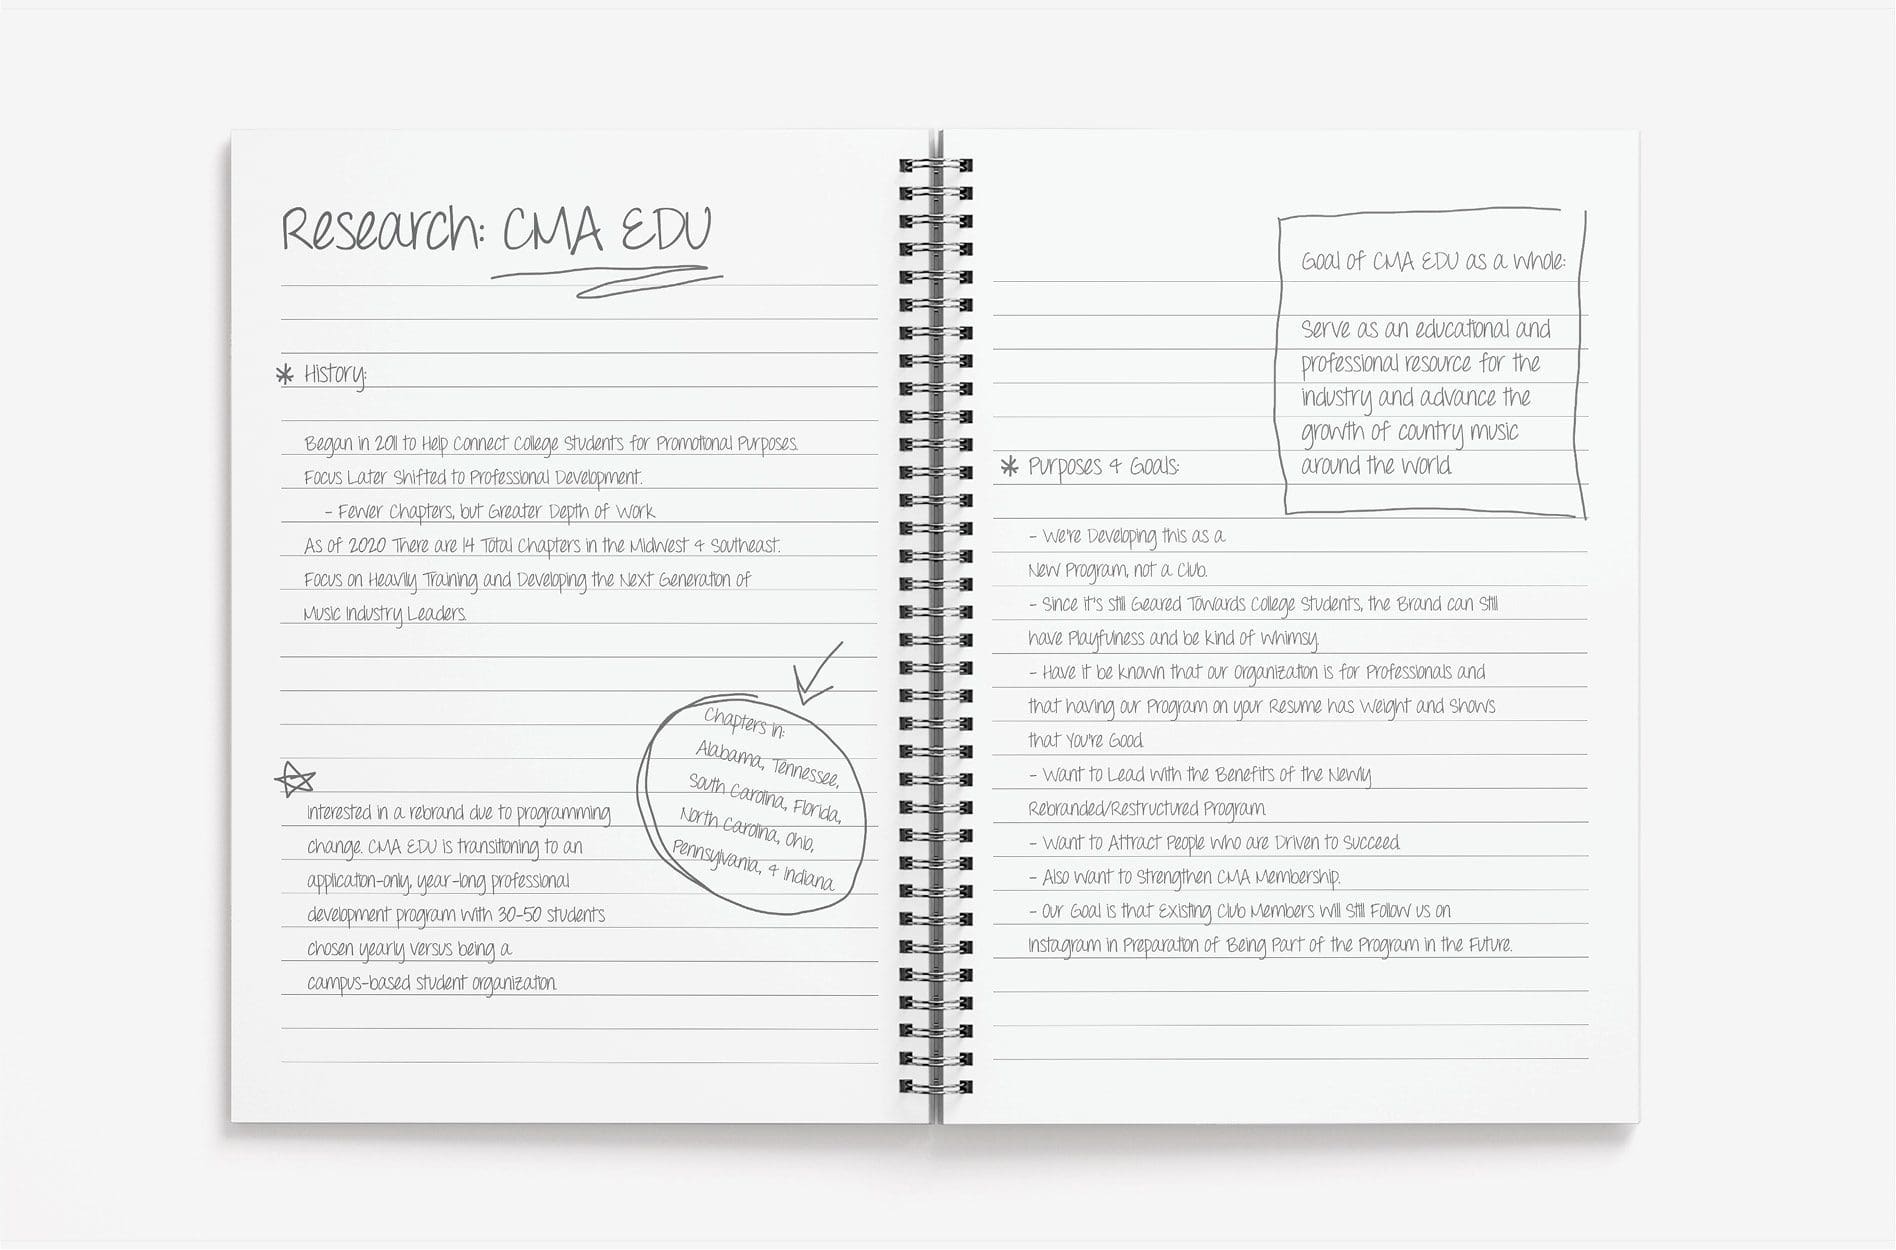 Research: CMA EDU
* History:
Began in 2011 to Help Connect College Students for Promotional Purposes.
Focus Later Shifted to Professional Development.
- Fewer Chapters, but Greater Depth of Work
As of 2020 There are 14 Total Chapters in the Midwest & Southeast.
Focus on Heavily Training and Developing the Next Generation of
Music Industry Leaders.
Chapters in:
Alabama, Tennessee,
South Carolina, Florida,
North Carolina, Ohio,
Pennsylvania, & Indiana
Interested in a rebrand due to programming
change. CMA EDU is transitioning to an
application-only, year-long professional
development program with 30-50 students
chosen yearly versus being a
campus-based student organization.
Goal of CMA EDU as a whole:
Serve as an educational and
professional resource for the
industry and advance the
growth of country music
around the world.
* Purposes & Goals:
- We're Developing this as a
New Program, not a Club.
- Since it's still Geared Towards College Students, the Brand can Still
have Playfulness and be kind of Whimsy.
- Have it be known that our Organization is for Professionals and
that having our Program on your Resume has Weight and Shows
that You're Good.
- Want to Lead with the Benefits of the Newly
Rebranded/Restructured Program.
- Want to Attract People Who are Driven to Succeed.
- Also Want to Strengthen CMA Membership.
- Our Goal is that Existing Club Members Will Still Follow us on
Instagram in Preparation of Being Part of the Program in the Future.